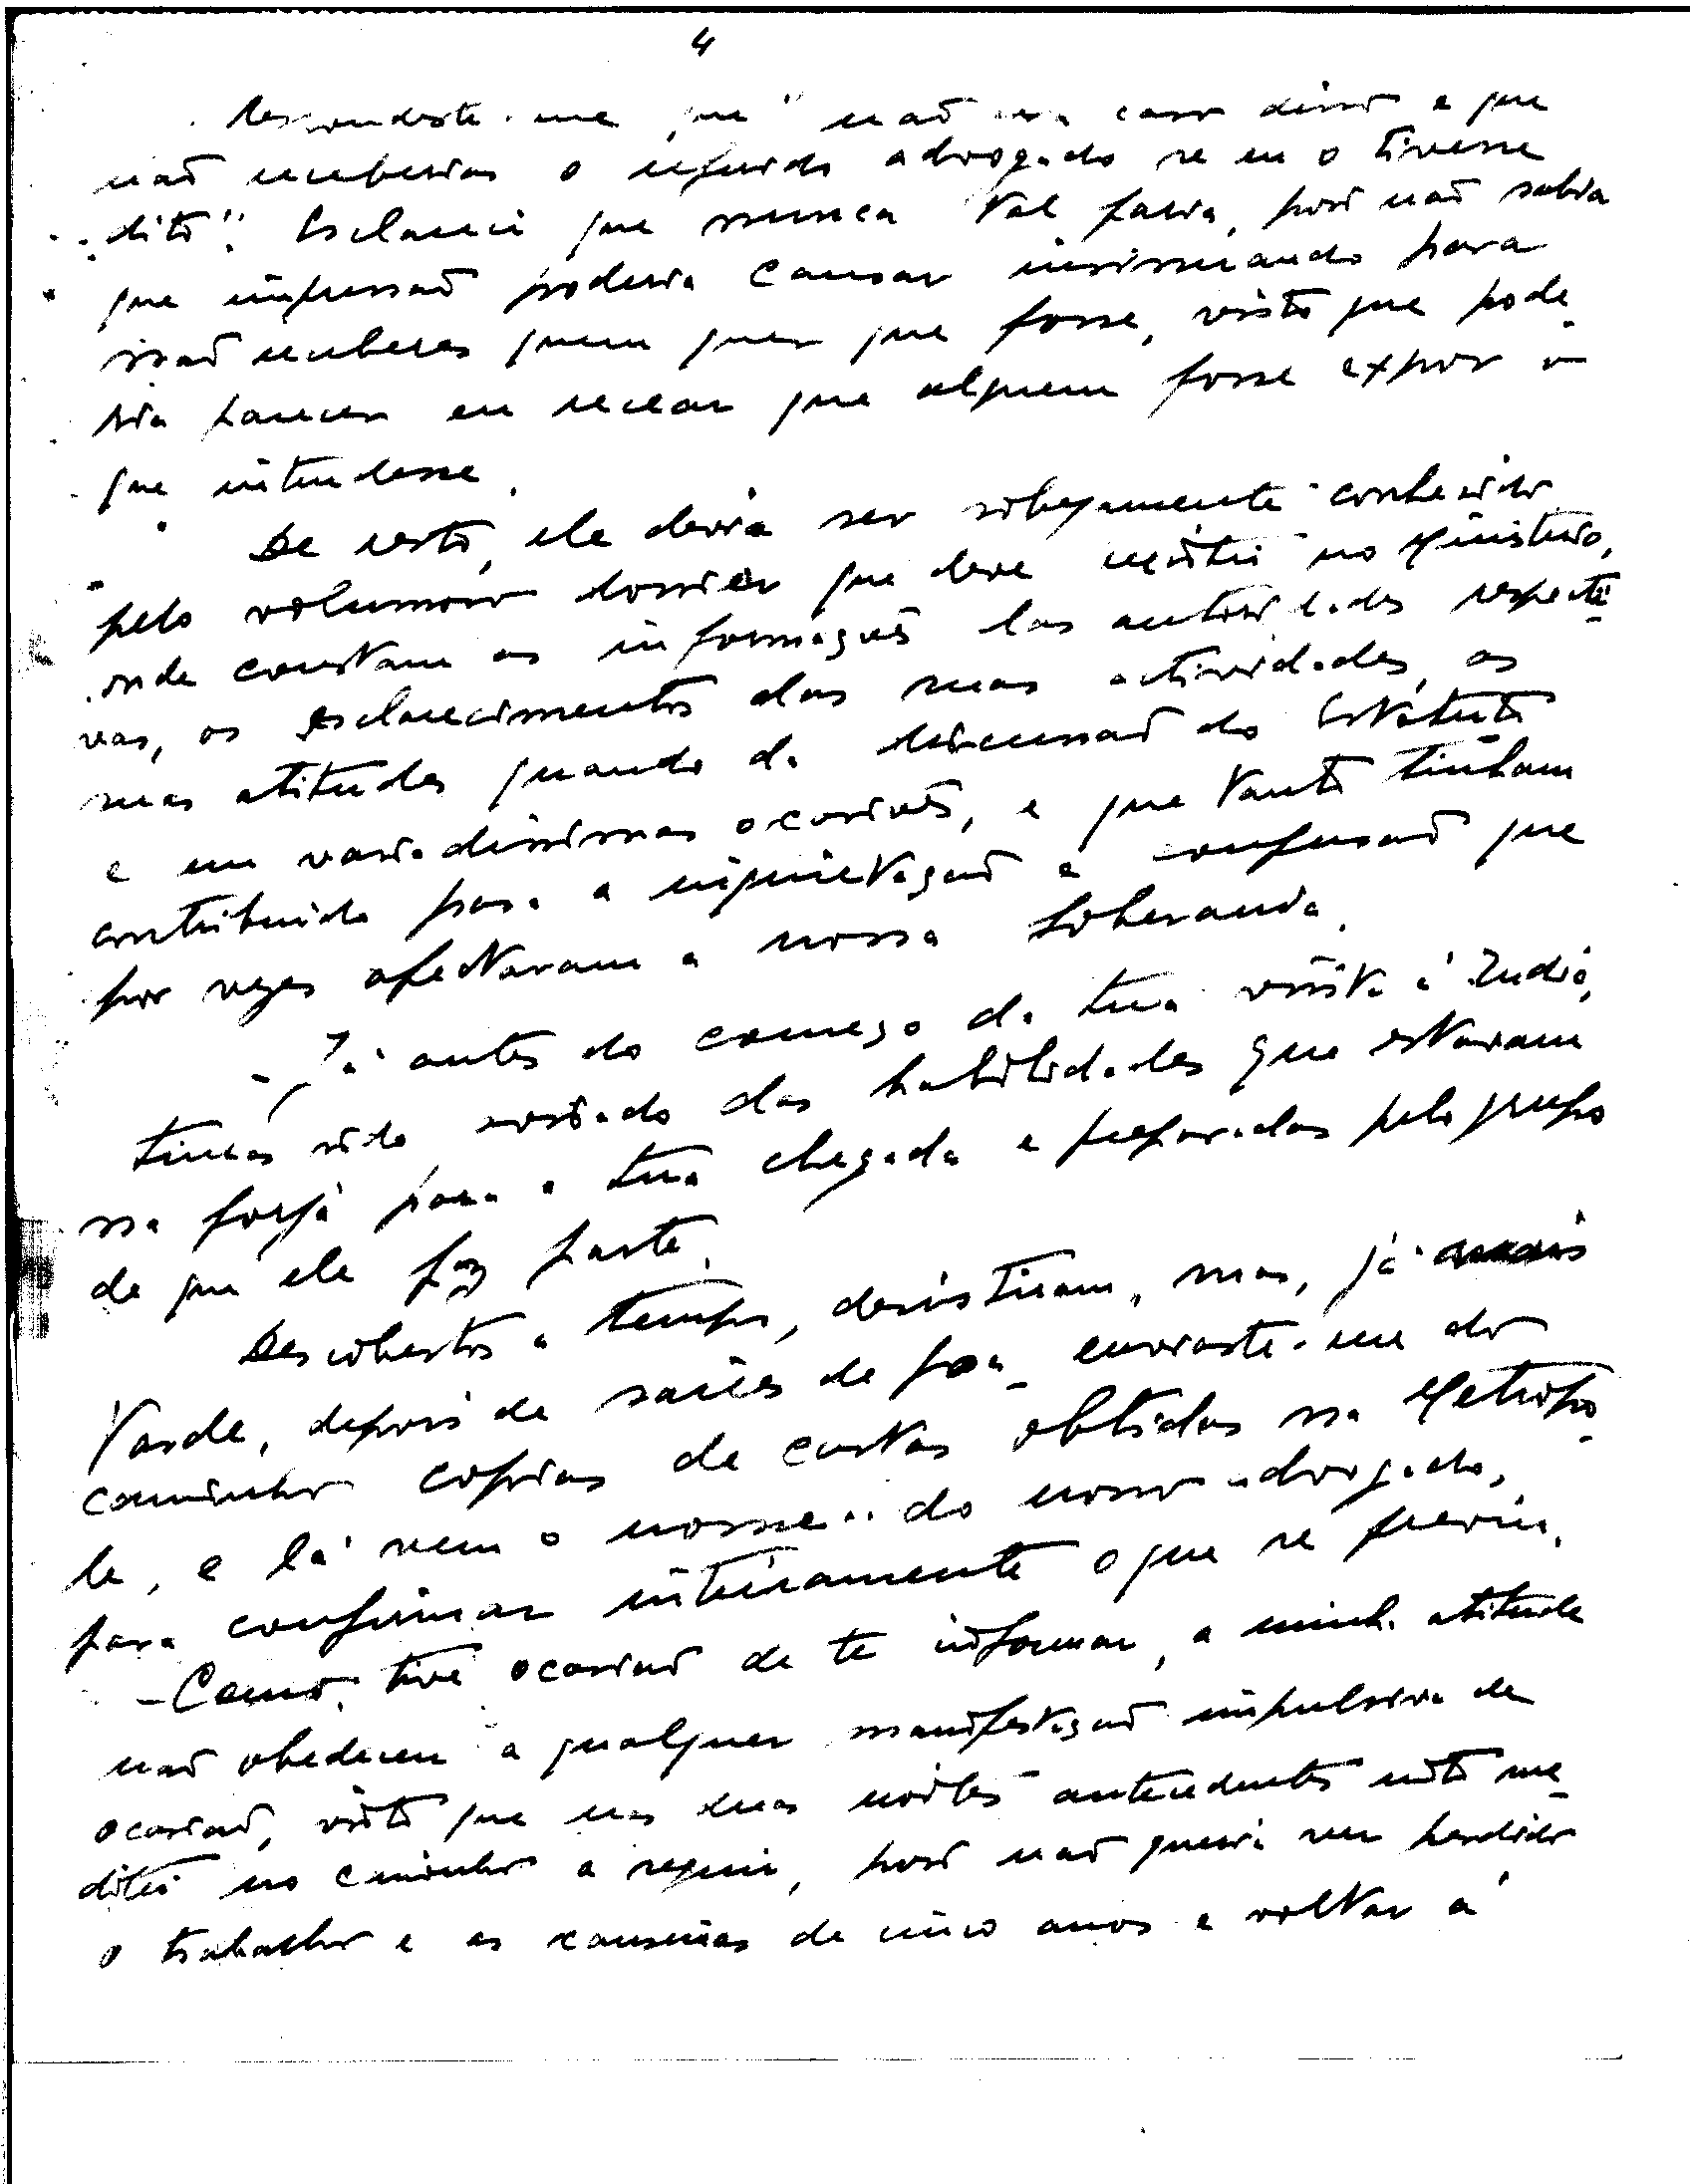 4
Respondeste-me que "não era caso disso e que
não receberias o referido advogado se eu o tivesse
dito". Esclareci que nunca tal faria, pois não sabia
que impressão poderia causar insinuando para
não receberes quem quer que fosse, visto que pode-
ria parecer eu recear que alguem fosse expor o
que entendesse.
De resto, ele devia ser sobejamente conhecido
pelo volumoso dossier que deve existir no Ministerio,
onde constam as informações das autoridades respecti-
vas, os esclarecimentos das suas actividades, as
suas atitudes quando da discussão do Estatuto
e em variadissimas ocasiões, e que tanto tinham
contribuido para a inquietação e confusão que
por vezes afectavam a nossa soberania.
- Já antes do começo da tua visita á India,
tinhas sido avisado das habilidades que estavam
na forja para a tua chegada e preparadas pelo grupo
de que ele faz parte.
Descobertos a tempo, desistiram, mas, já mais
tarde, depois de saires de Goa, enviaste-me do
caminho copias de cartas obtidas na Metropo-
le, e lá vem o nome do nosso advogado,
para confirmar inteiramente o que se previa.
- Como tive ocasião de te informar, a minha atitude
não obedeceu a qualquer manifestação impulsiva de
ocasião, visto que nas duas noites antecedentes nisto me-
ditei no caminho a seguir, pois não queria ver perdido
o trabalho e as canseiras de cinco anos e voltar á